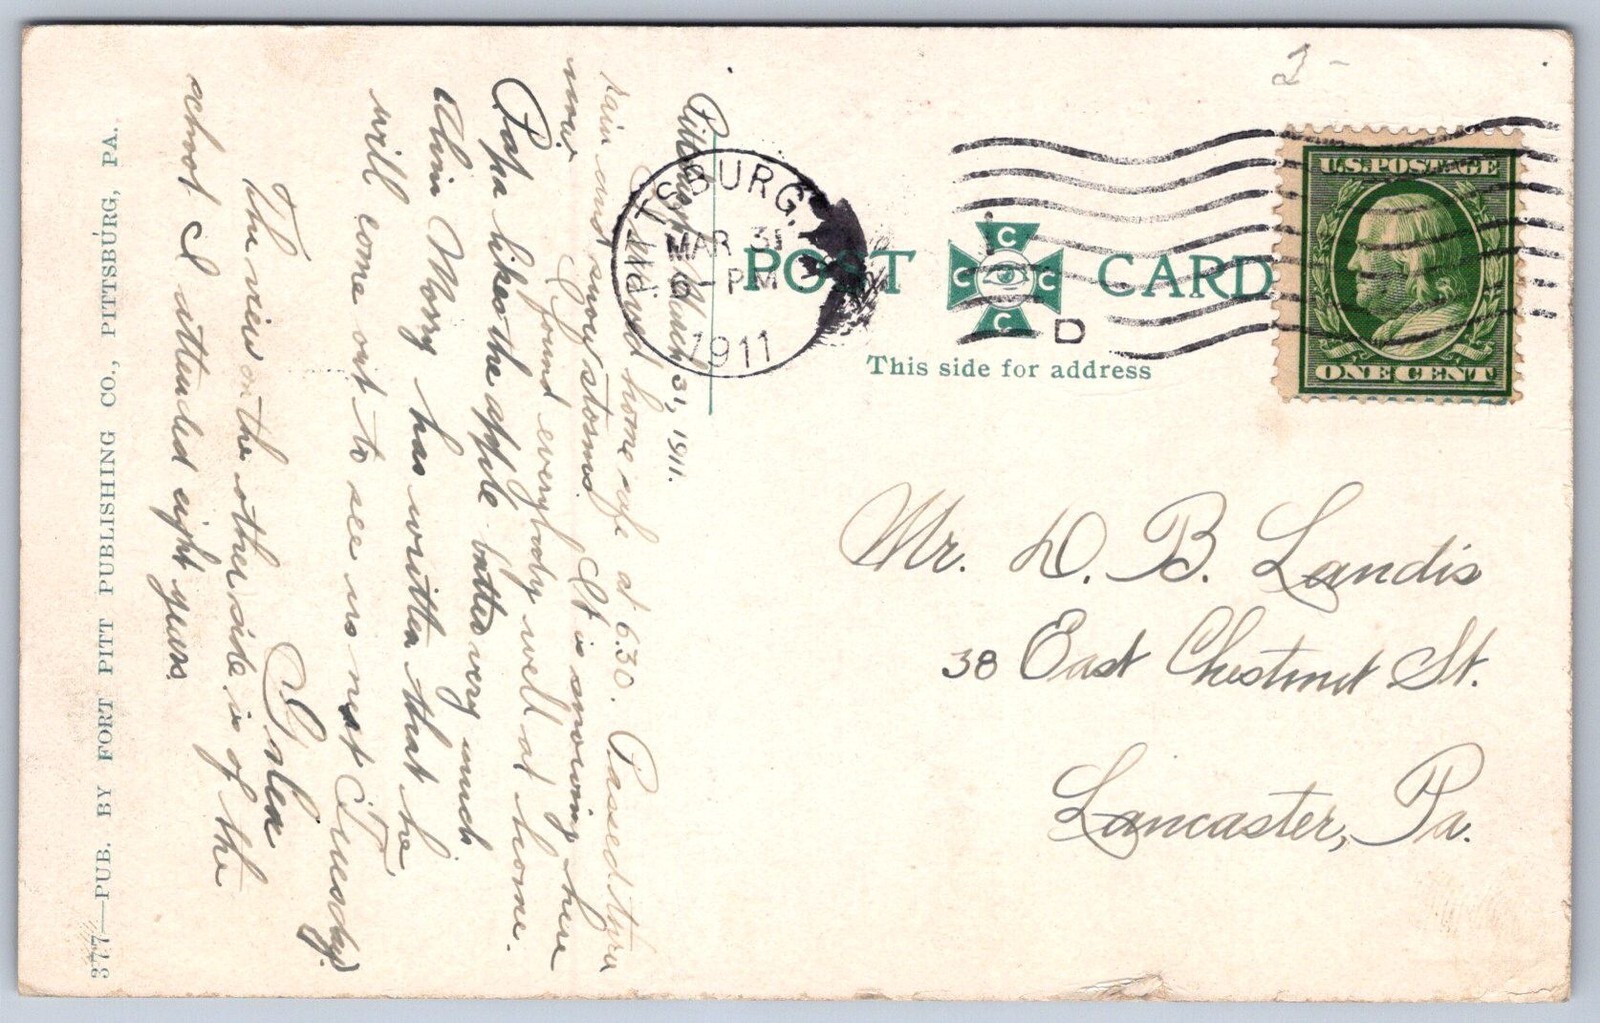 2-
U.S. POSTAGE
ONE CENT
PITTSBURG,
MAR 31
6- PM
1911
D
POST CARD
C
C C
C
This side for address
Mr. D. B. Landis
38 East Chestnut St.
Lancaster, Pa.
Pittsburgh, March 31, 1911.
Arrived home safe at 6.30. Passed thru
rain and snow storms. It is snowing here
now. I found everybody well at home.
Papa likes the apple butter very much
Alvin Morry has written that he
will come out to see us next Tuesday.
The view on the other side is of the
school I attended eight years.
377—PUB. BY FORT PITT PUBLISHING CO., PITTSBURG, PA.